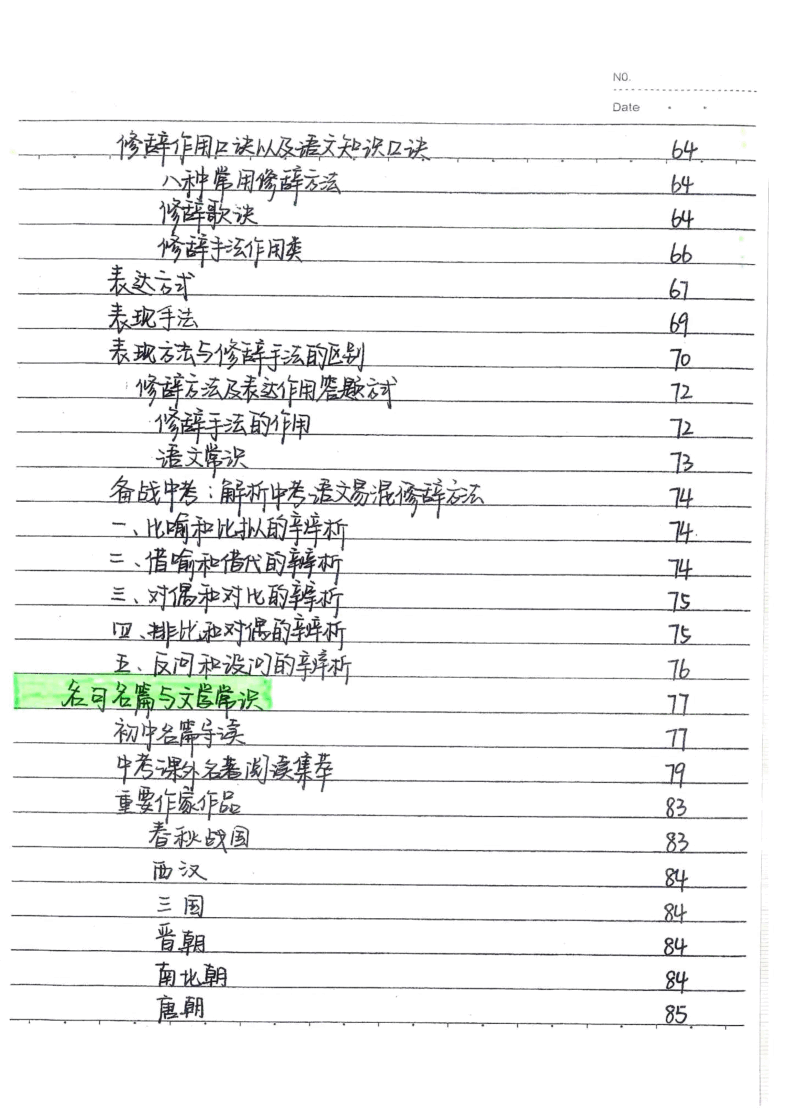 NO.
Date
修辞作用口诀以及语文知识口诀 64
八种常用修辞方法 64
修辞歌诀 64
修辞手法作用类 66
表达方式 67
表现手法 69
表现方法与修辞手法的区别 70
修辞方法及表达作用答题方式 72
修辞手法的作用 72
语文常识 73
备战中考：解析中考语文易混修辞方法 74
一、比喻和比拟的辨析 74
二、借喻和借代的辨析 74
三、对偶和对比的辨析 75
四、排比和对偶的辨析 75
五、反问和设问的辨析 76
名句名篇与文学常识 77
初中名篇导读 77
中考课外名著阅读集萃 79
重要作家作品 83
春秋战国 83
西汉 84
三国 84
晋朝 84
南北朝 84
唐朝 85